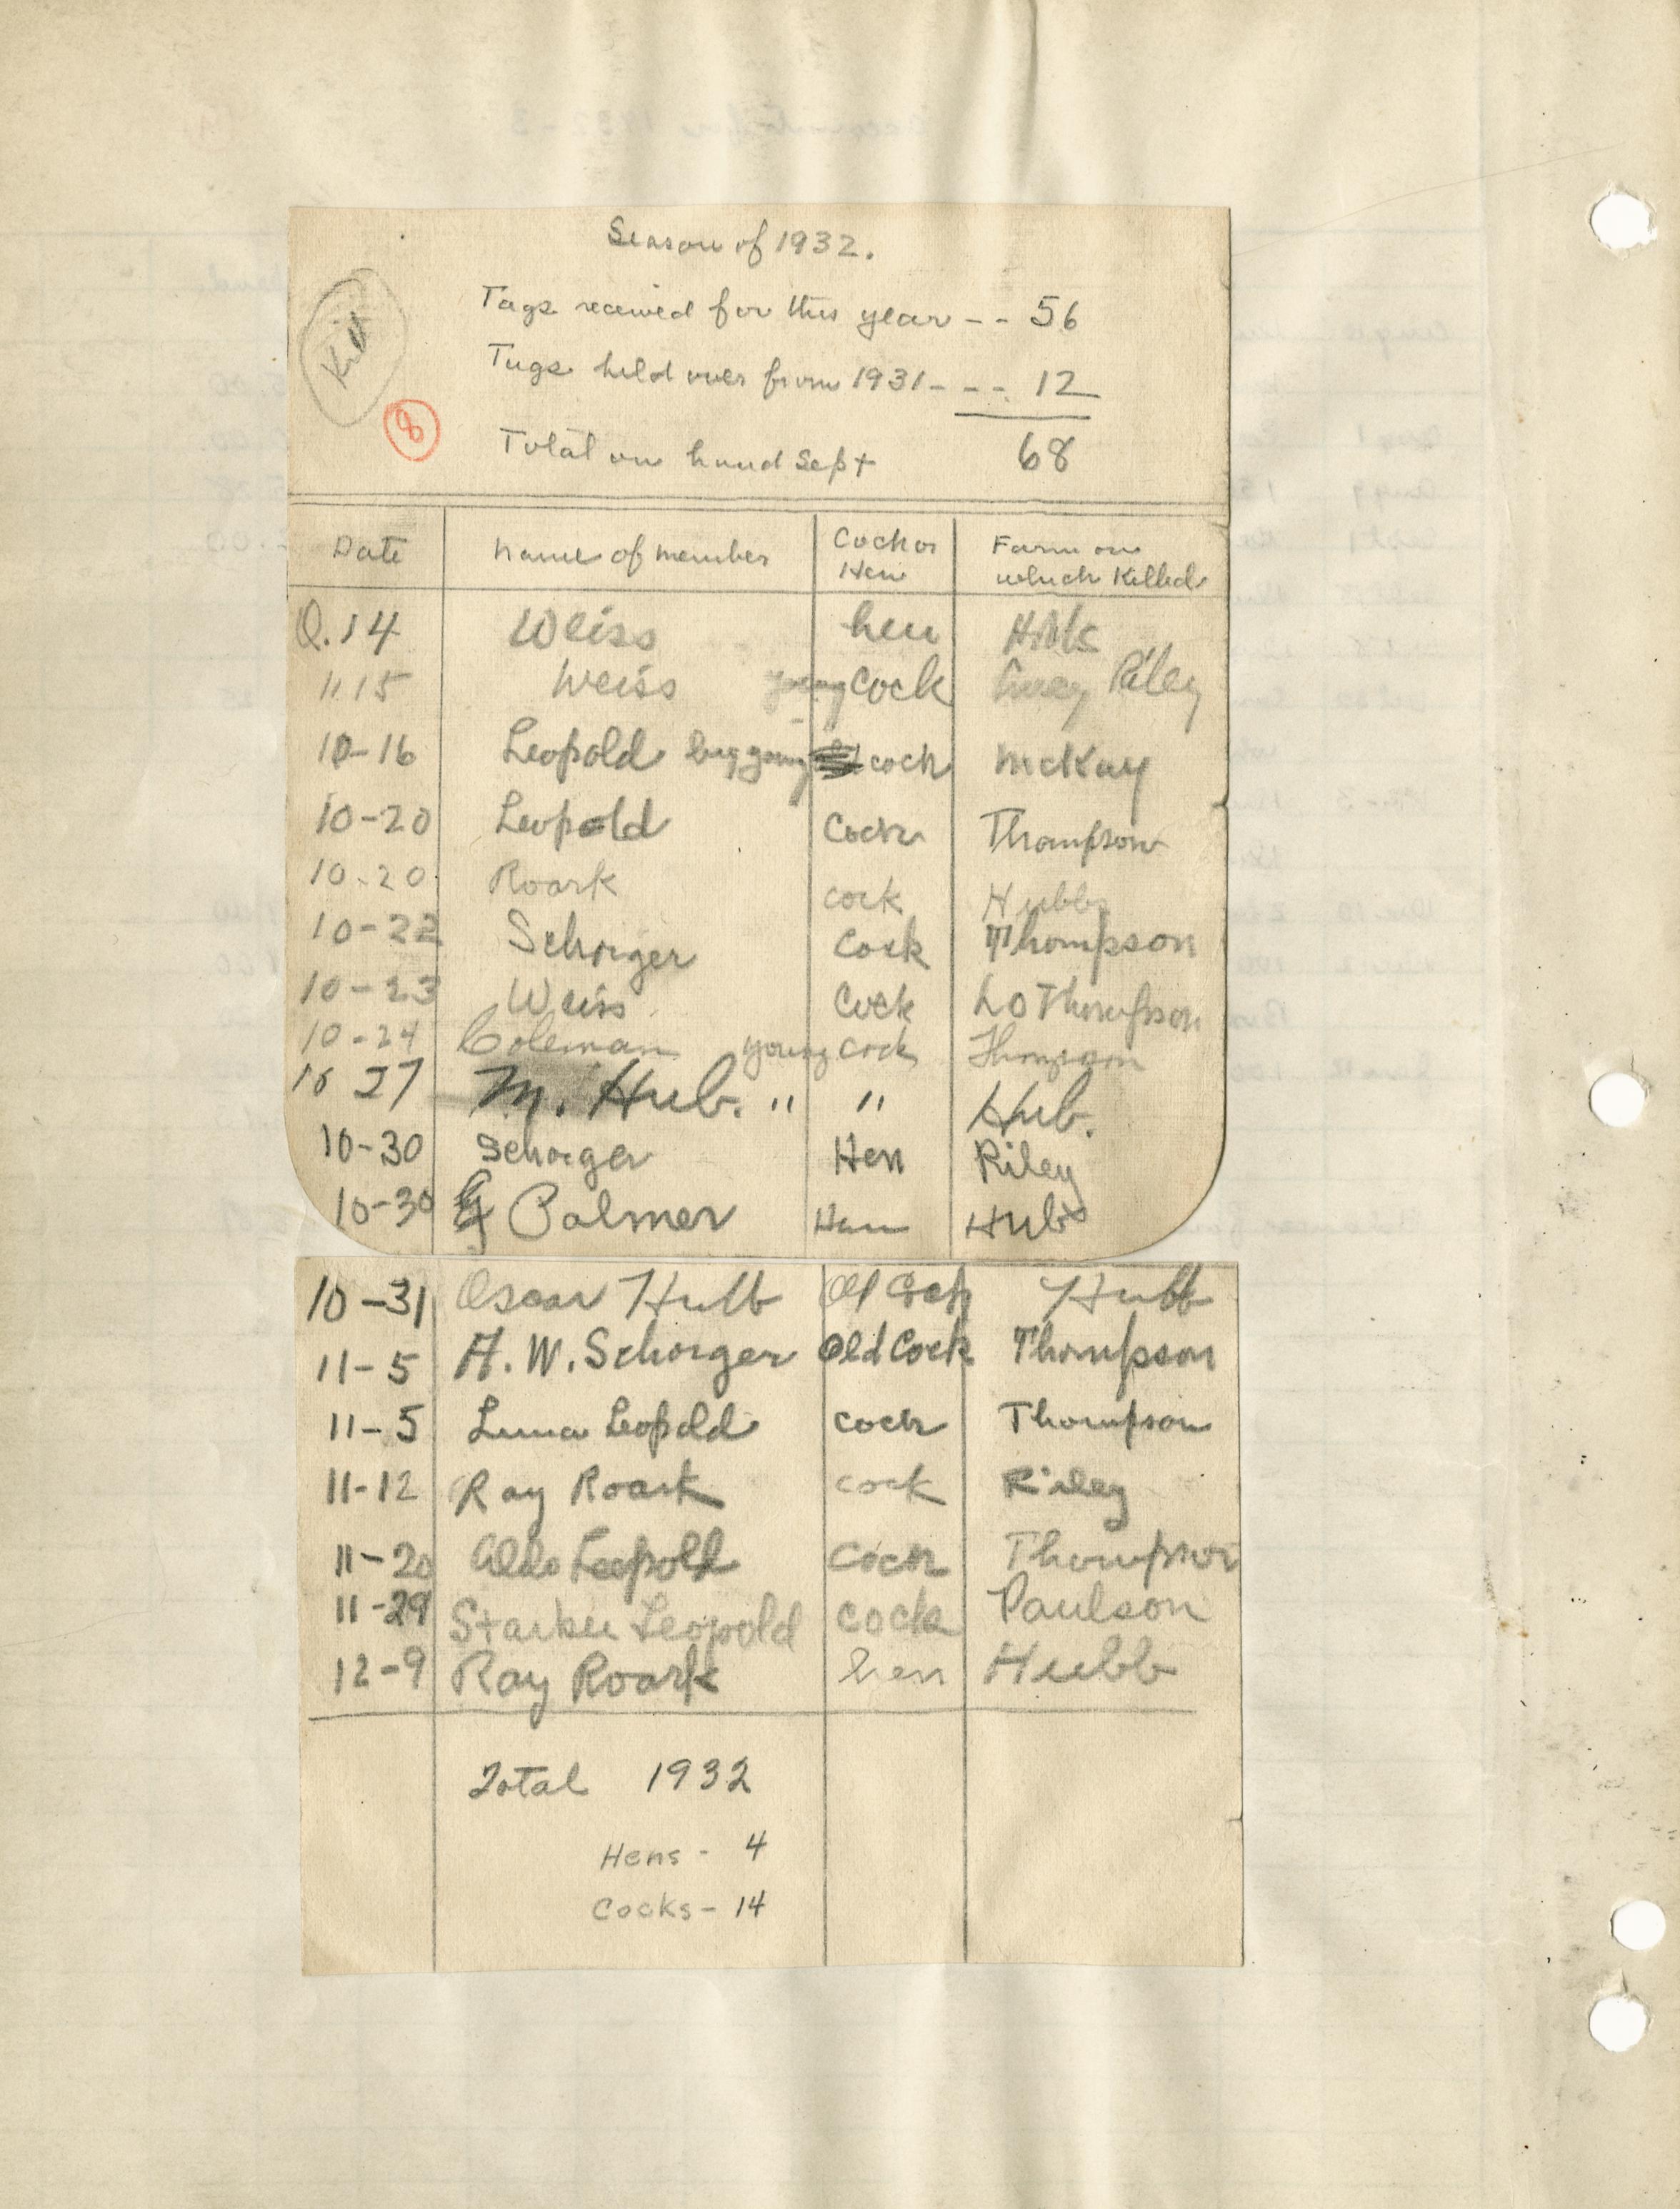 Season of 1932.
Tags received for this year -- 56
Kill
Tags held over from 1931 --- 12
8
Total on hand Sept 68
Date Name of member Cock or Hen Farm on which Killed
O. 14 Weiss hen
11 15 Weiss young Cock Riley
10-16 Leopold young cock McKay
10-20 Leopold Cock Thompson
10-20 Roark cock Hubbs
10-22 Schorger Cock Thompson
10-23 Weiss Cock Thompson
10-24 Coleman young cock Thompson
10 27 M. Hub. " " Hub.
10-30 Schorger Hen Riley
10-30 Palmer Hen Hub
10-31 Oscar Hubb Old Cock Hubb
11-5 A. W. Schorger Old Cock Thompson
11-5 Luna Leopold cock Thompson
11-12 Ray Roark cock Riley
11-20 Aldo Leopold Cock Thompson
11-29 Starker Leopold cock Paulson
12-9 Ray Roark hen Hubb
Total 1932
Hens - 4
Cocks - 14